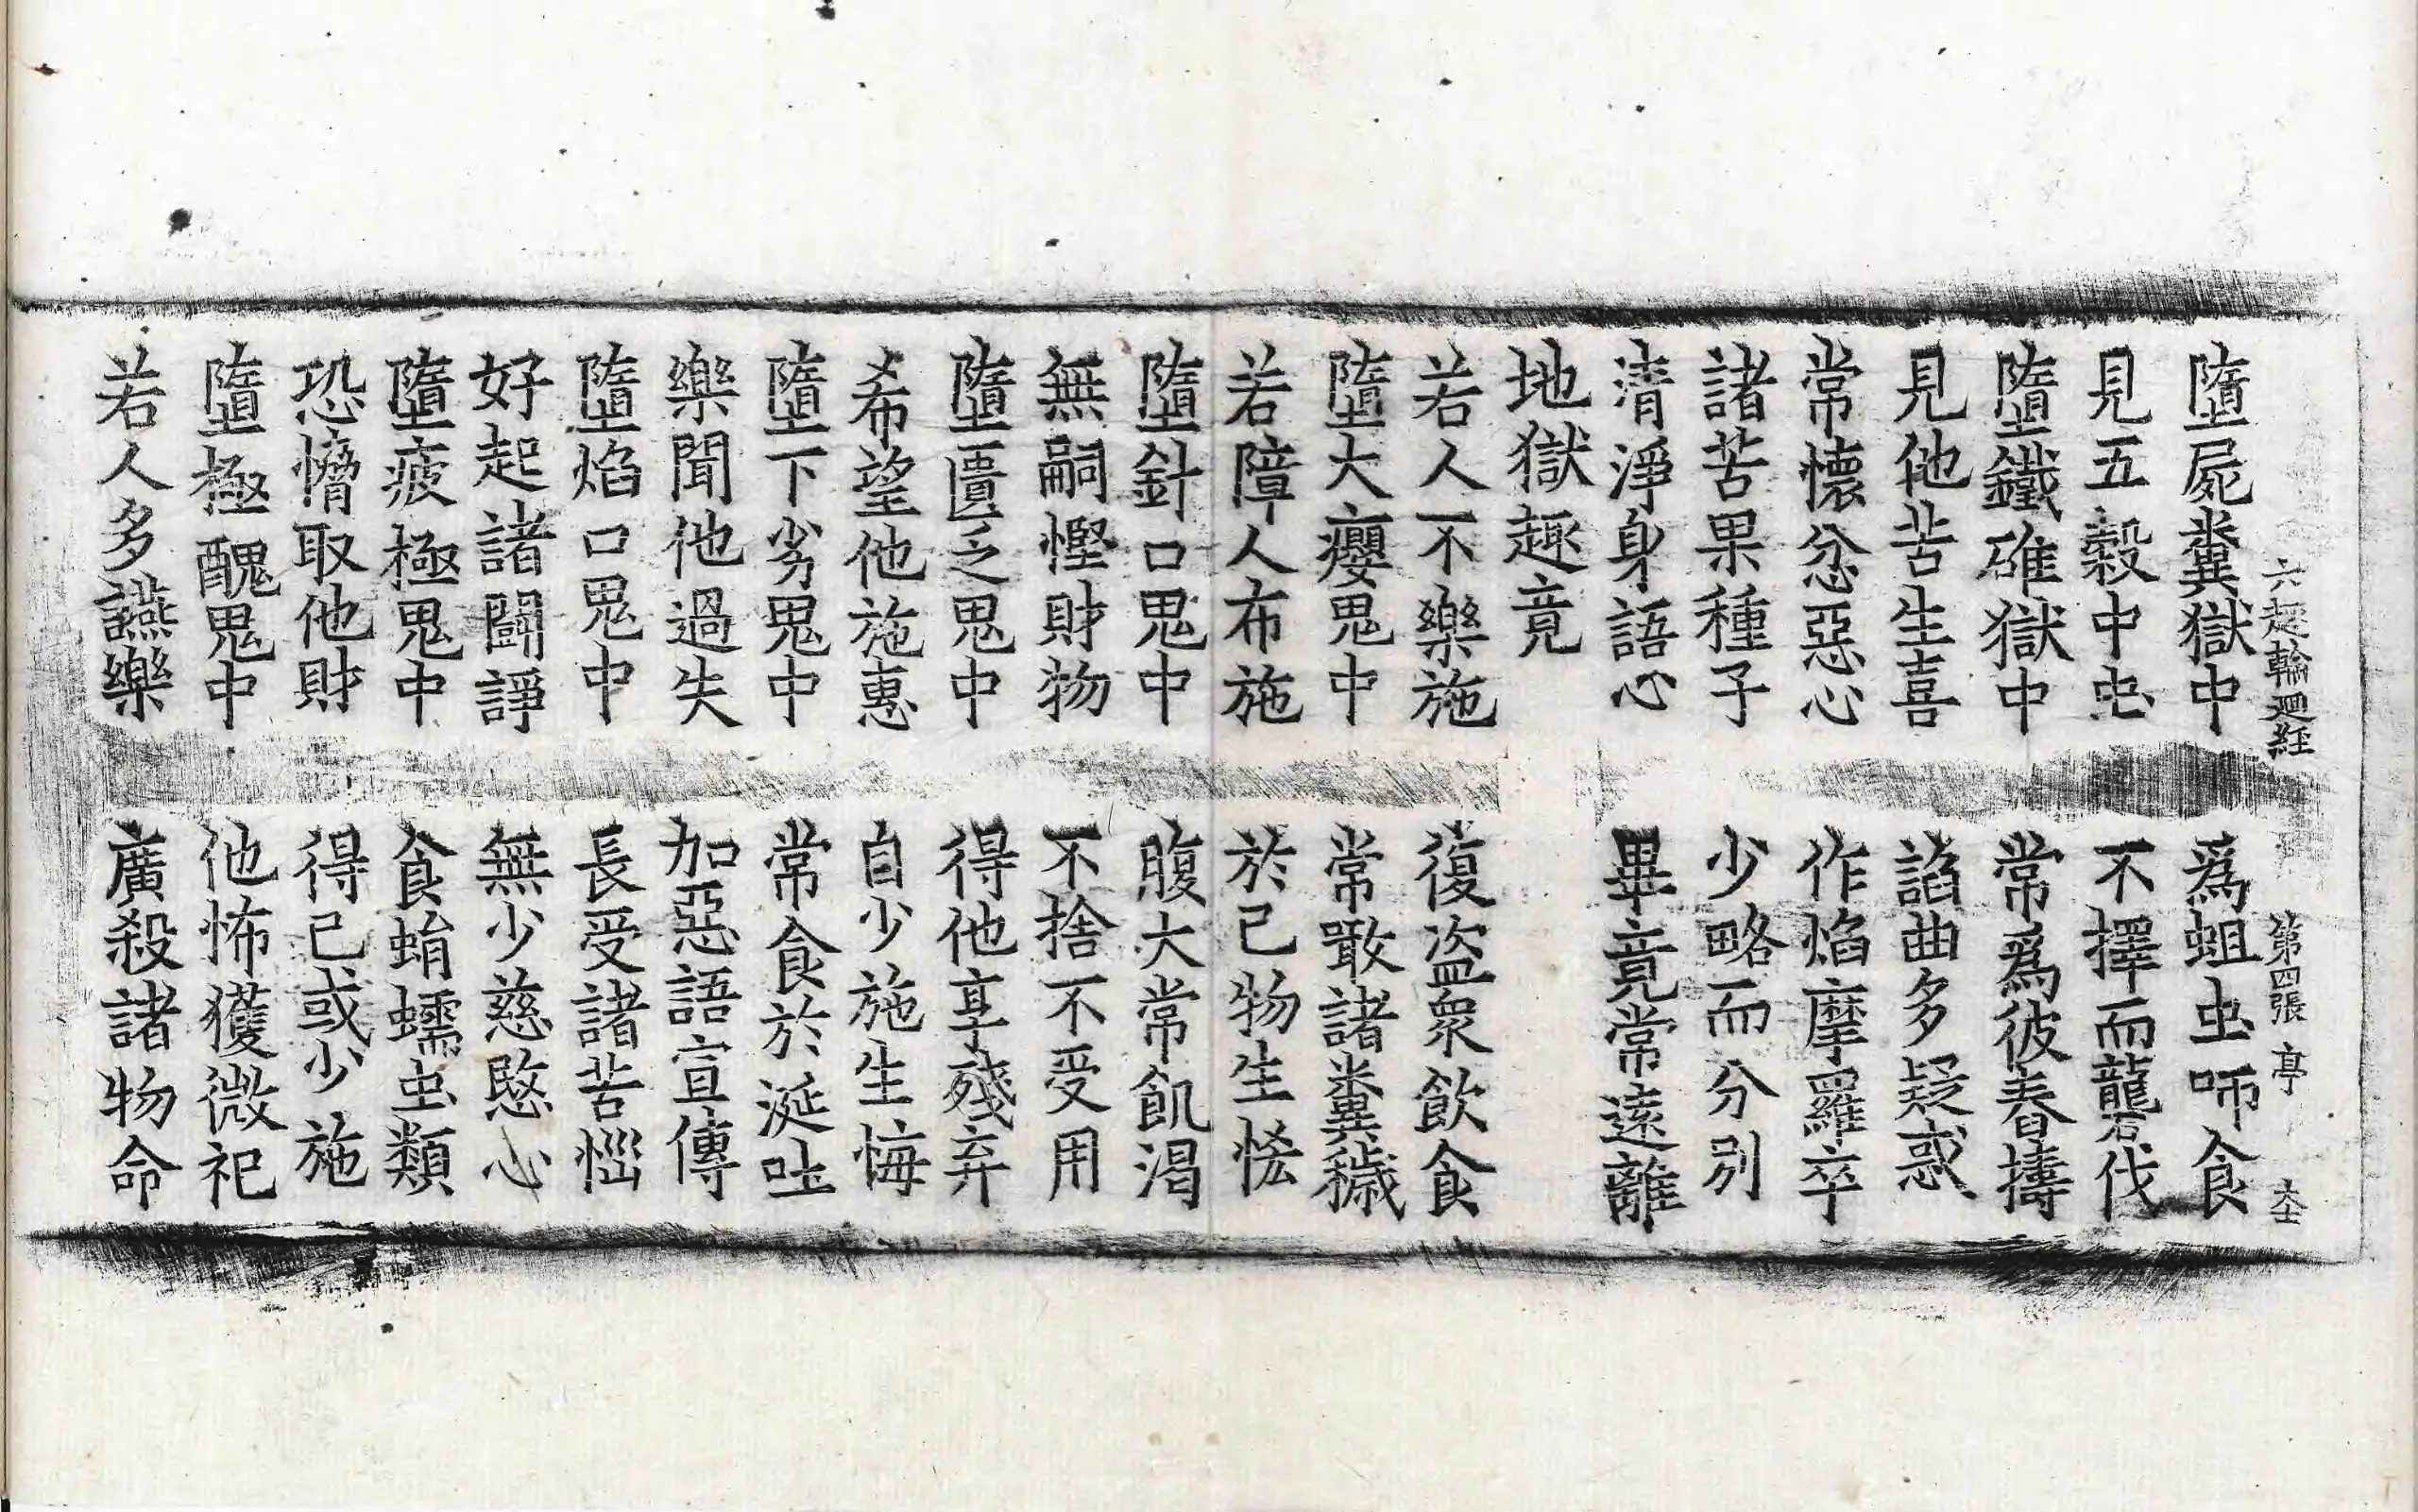 六趣輪廻経　第四張　亭　大士
墮屍糞獄中　爲蛆虫咂食
見五穀中虫　不擇而礱伐
墮鐵碓獄中　常爲彼舂擣
見他苦生喜　諂曲多疑惑
常懷忿惡心　作焰摩羅卒
諸苦果種子　少略而分別
清淨身語心　畢竟常遠離
地獄趣竟
若人不樂施　復盗衆飲食
墮大癭鬼中　常噉諸糞穢
若障人布施　於己物生悋
墮針口鬼中　腹大常飢渴
無嗣慳財物　不捨不受用
墮匱乏鬼中　得他享殘弃
希望他施惠　自少施生悔
墮下劣鬼中　常食於涎吐
樂聞他過失　加惡語宣傳
墮焰口鬼中　長受諸苦惱
好起諸鬪諍　無少慈愍心
墮疲極鬼中　食蛕蠕虫類
恐愶取他財　得已或少施
墮極醜鬼中　他怖獲微祀
若人多讌樂　廣殺諸物命